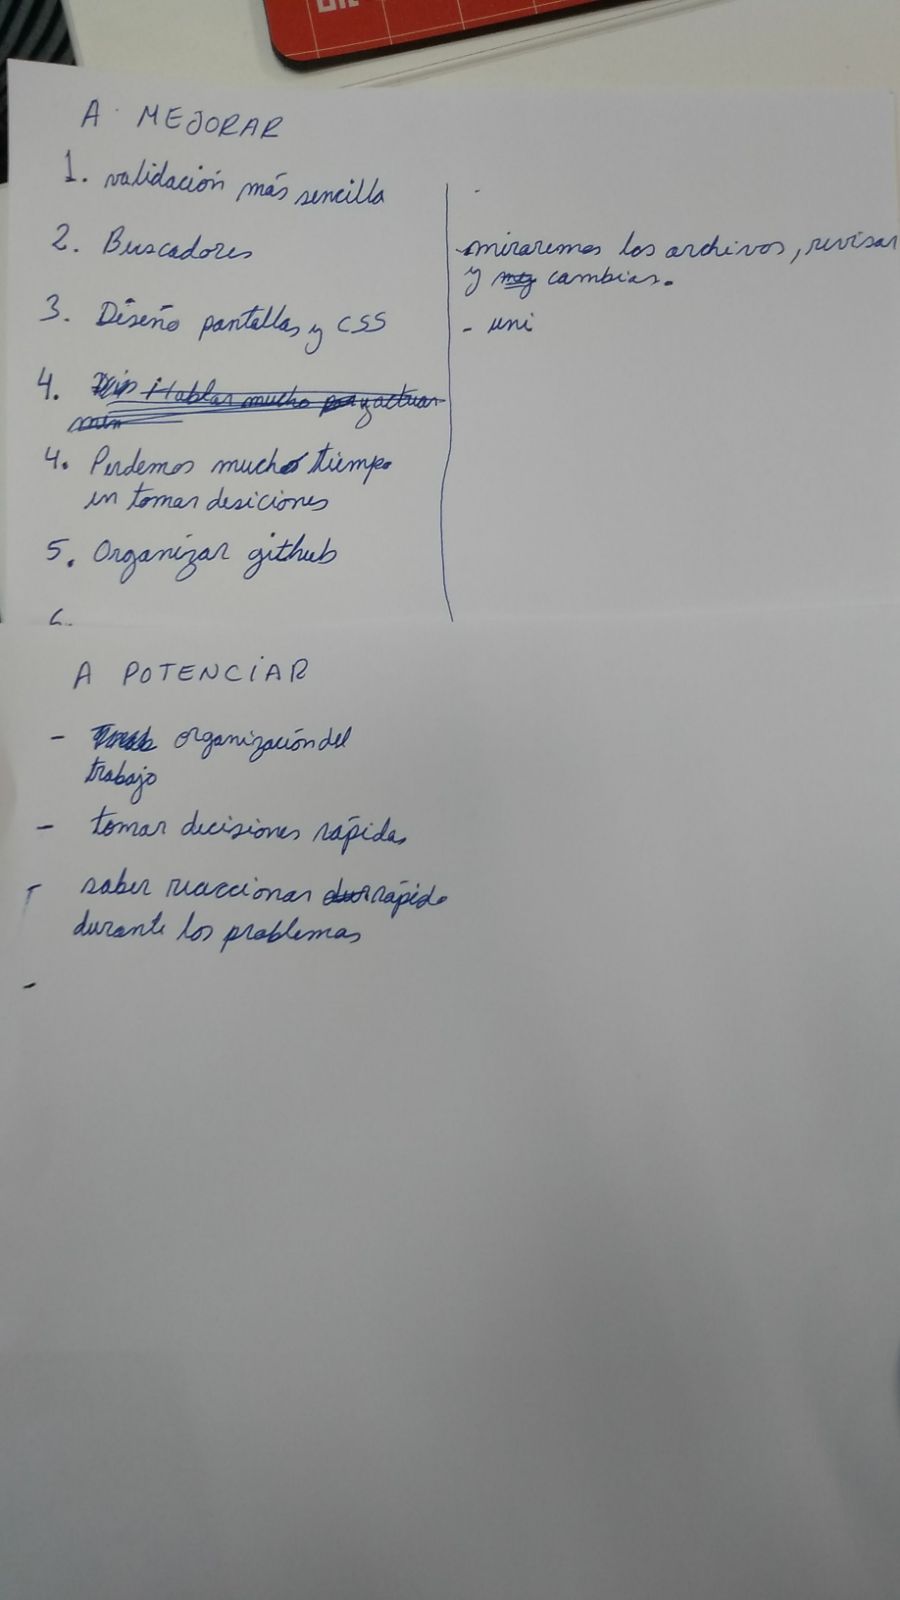 A MEJORAR
1. validación más sencilla
2. Buscadores
3. Diseño pantallas y CSS
4. Hablar mucho y actuar
4. Perdemos mucho tiempo
en tomar desiciones
5. Organizar github
6.
- miraremos los archivos, revisar
y cambiar.
- uni
A POTENCIAR
- organización del
trabajo
- tomar decisiones rápidas
- saber reaccionar rápido
durante los problemas
-